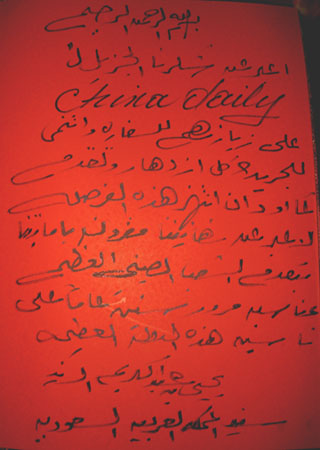 بسم الله الرحمن الرحيم
اعبر عن شكرنا الجزيل لـ
China Daily
على زيارتهم للسفارة واتمنى
للجريدة كل ازدهار وتقدم
كما اود ان انتهز هذه الفرصة
لاعبر عن
وتقدم الشعب الصيني العظيم
بمناسبة مرور ستين عاما على
تأسيس هذه الدولة العظيمة
يحيى عبدالكريم الزيد
سفير المملكة العربية السعودية